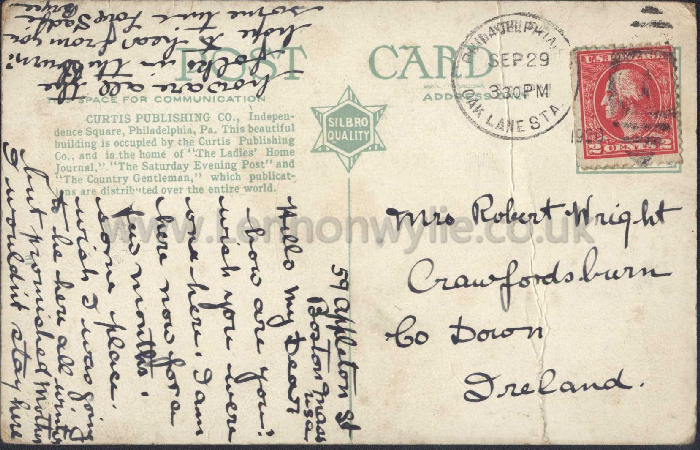 POST CARD
SPACE FOR COMMUNICATION
ADDRESS
CURTIS PUBLISHING CO., Indepen-
dence Square, Philadelphia, Pa. This beautiful
building is occupied by the Curtis Publishing
Co., and is the home of "The Ladies' Home
Journal," "The Saturday Evening Post" and
"The Country Gentleman," which publicat-
ions are distributed over the entire world.
SILBRO
QUALITY
PHILADELPHIA
SEP 29
330 PM
OAK LANE STA.
U.S. POSTAGE
2 CENTS 2
www.Lennonwylie.co.uk
Mrs Robert Wright
Crawfordsburn
Co Down
Ireland.
59 Appleton St
Boston Mass
USA
Hello My Dear
how are you.
wish you were
here. I am
here now for a
few months.
some place.
wish I was going
to be here all winter
but promished Mother
I wouldn't stay here
how are all the
folks in the burn
hope to hear from you
some time Love Sadie